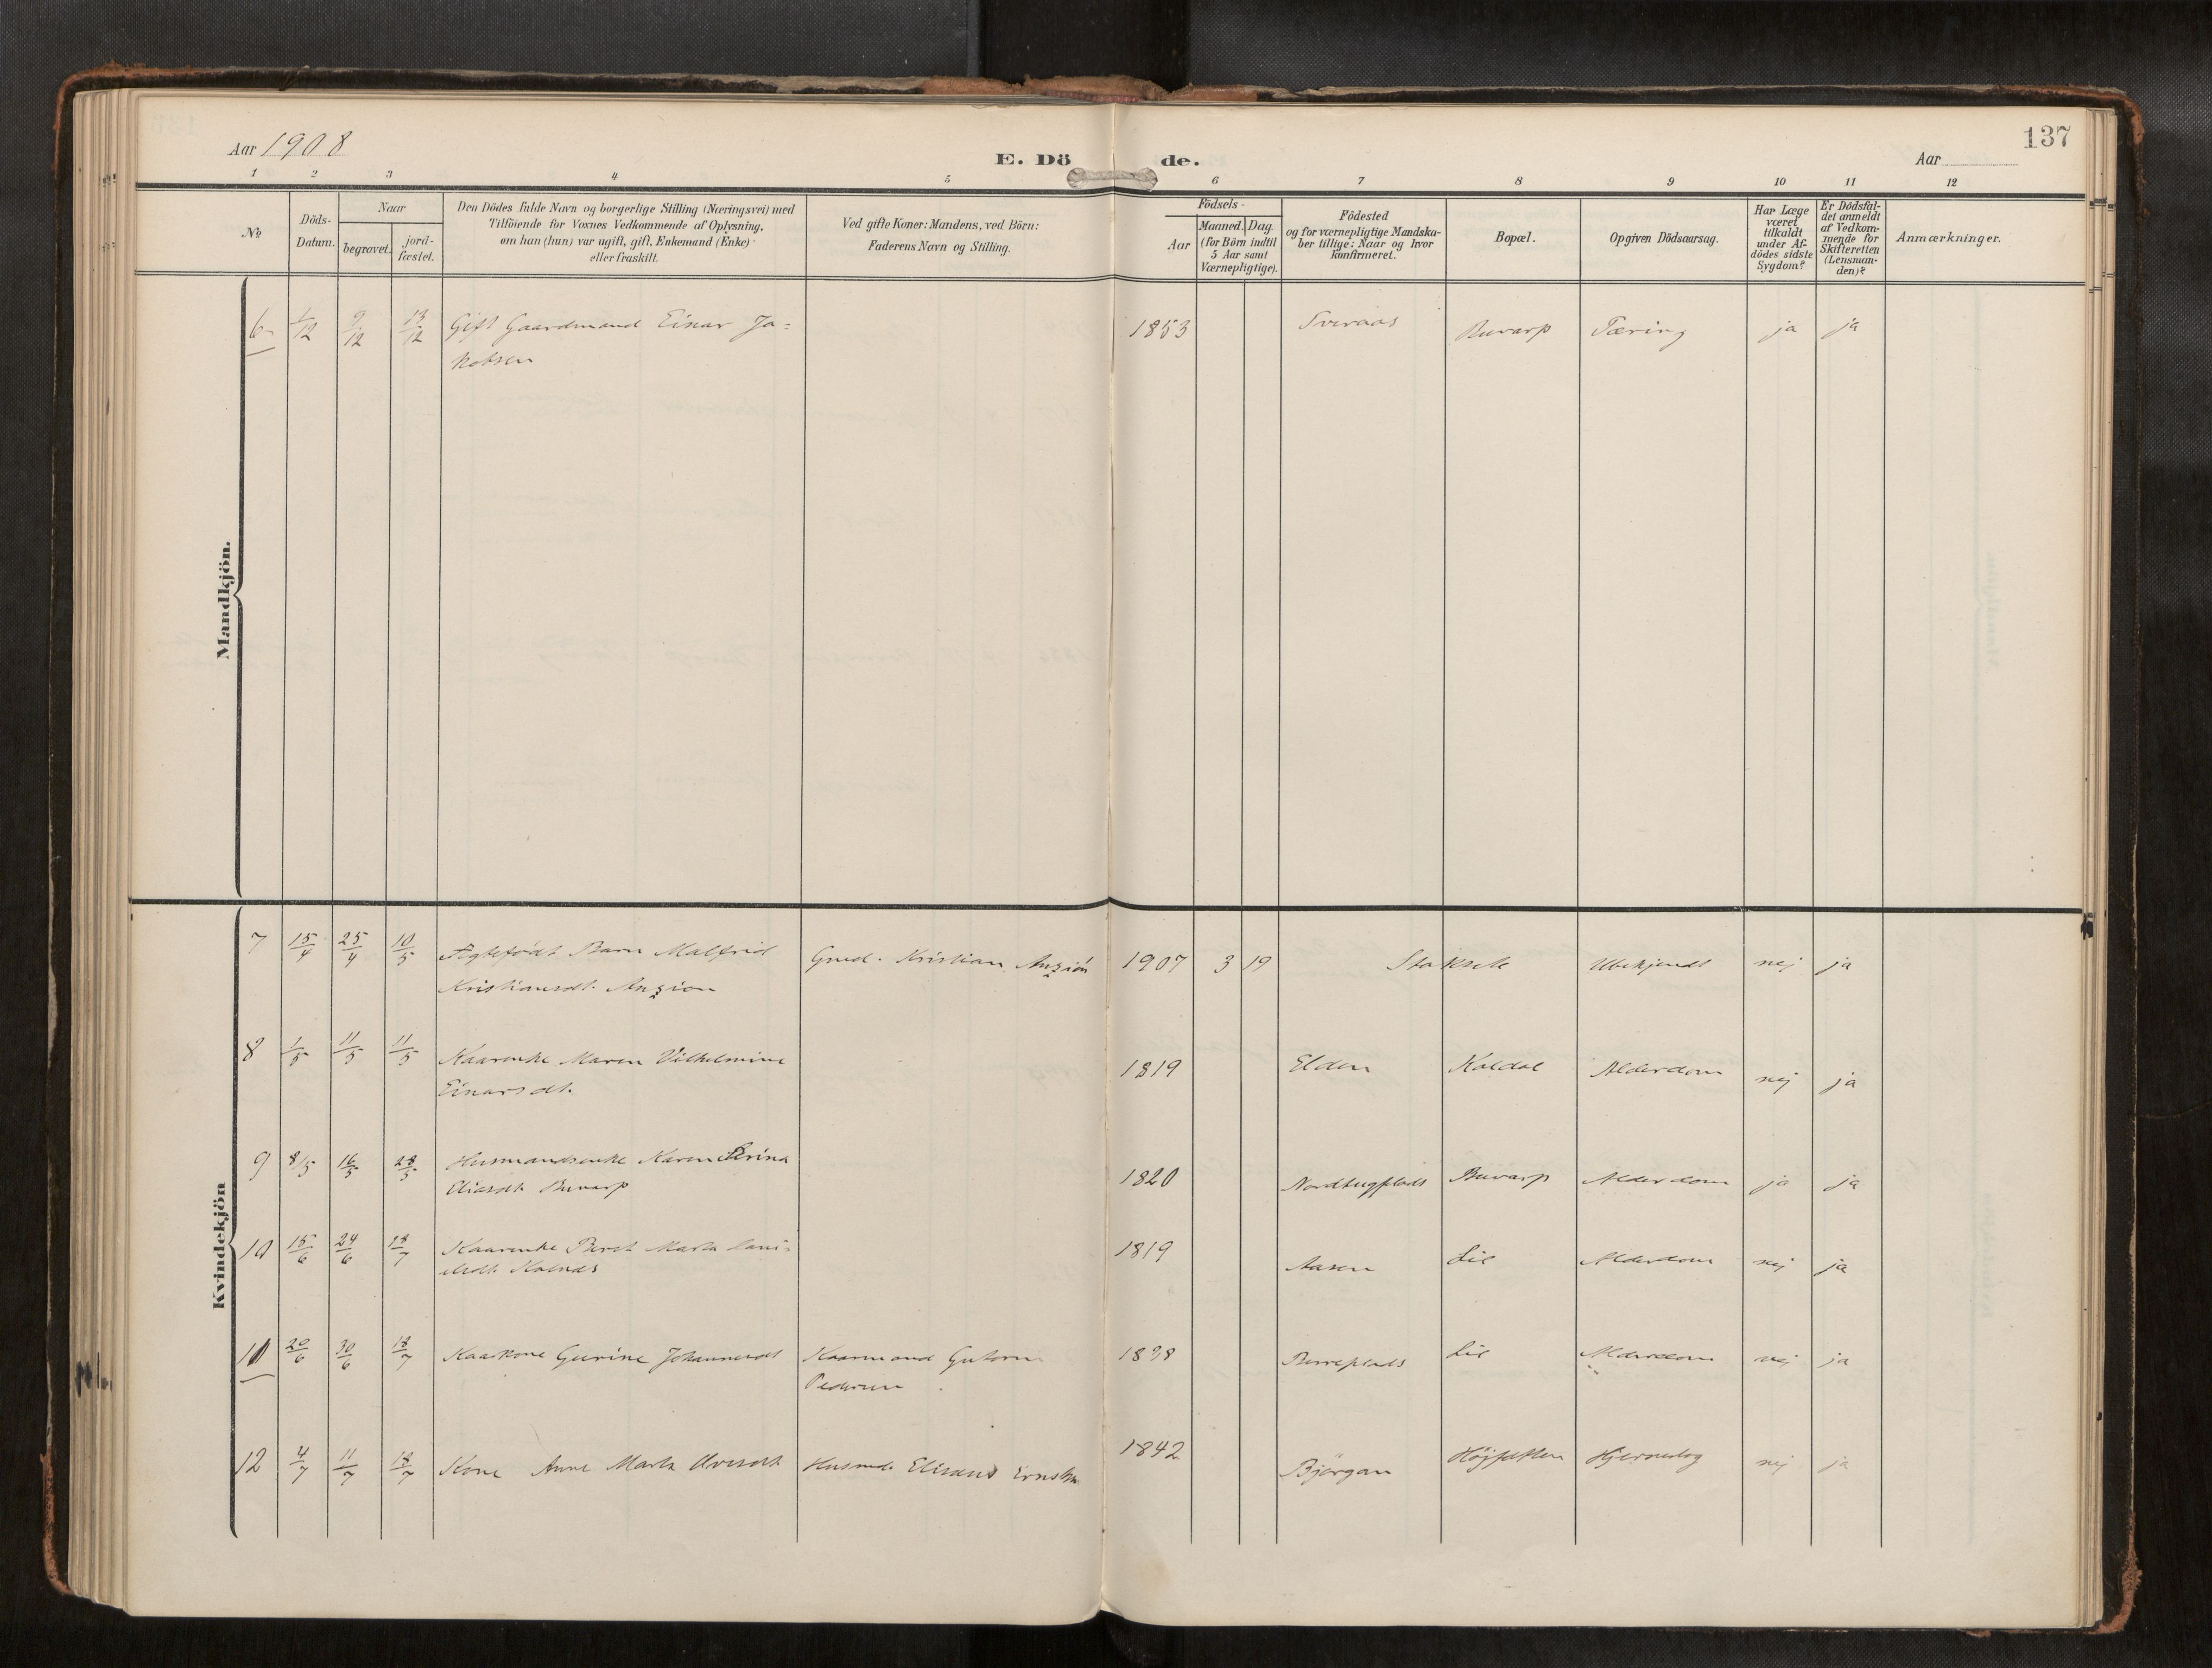 Aar 1908
E. Döde.
Aar
137
1 2 3 4 5 6 7 8 9 10 11 12
№
Döds-
Datum.
Naar
begravet.
jord-
fæstet.
Den Dödes fulde Navn og borgerlige Stilling (Næringsvei) med
Tilföiende for Voxnes Vedkommende af Oplysning,
om han (hun) var ugift, gift, Enkemand (Enke)
eller fraskilt.
Ved gifte Koner: Mandens, ved Börn:
Faderens Navn og Stilling.
Födsels-
Aar
Maaned. Dag.
(for Börn indtil
5 Aar samt
Værnepligtige).
Födested
og for værnepligtige Mandska-
ber tillige: Naar og hvor
konfirmeret.
Bopæl.
Opgiven Dödsaarsag.
Har Læge
været
tilkaldt
under Af-
dödes sidste
Sygdom?
Er Dödsfal-
det anmeldt
af Vedkom-
mende for
Skifteretten
(Lensman-
den)?
Anmærkninger.
Mandkjön.
6 1/12 9/12 13/12 Gift Gaardmand Einar Ja= 1853 Sveraas Buvarp Tæring ja ja
kobsen
Kvindekjön
7 15/4 25/4 10/5 Ægtefødt Barn Malfrid Gmd. Kristian Anzión 1907 3 19 Ubekjendt nej ja
Kristiansdt. Anzion
8 1/5 11/5 11/5 Kaarenke Maren Vilhelmine 1819 Elden Kaldal Alderdom nej ja
Einarsdt.
9 8/5 16/5 28/5 Husmandsenke Karen Serina 1820 Nordbugplads Buvarp Alderdom ja ja
Eliasdt. Buvarp
10 15/6 24/6 18/7 Kaarenke Beret Marta 1819 Aasen Lil Alderdom nej ja
11 20/6 30/6 18/7 Kaarkone Gurine Johannesdt Kaarmand Gutorm 1838 Lil Alderdom nej ja
Pedersen
12 4/7 11/7 18/7 Kone Anne Marta Husmd. Elisæus Ernstsen 1842 Björgan Højsletten Hjerneslag nej ja